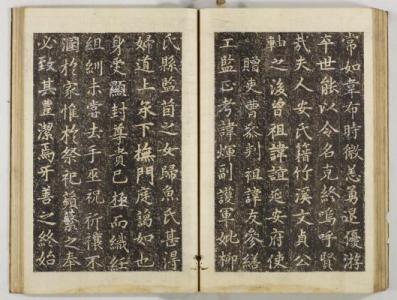 常如韋布時微恙勇退優游
卒世能以令名克終嗚呼賢
哉夫人安氏籍竹溪文貞公
軸之後曾祖諱誼延安府使
贈吏曹參判祖諱友參繕
工監正考諱煇副護軍妣柳
氏縣監苟之女歸魚氏甚得
婦道上承下撫門庭謐如也
身受顯封尊貴已極而織紝
組紃未嘗去手巫祝祈禳不
溷於家惟於祭祀蘋蘩之奉
必致其豊潔焉牙善之終始